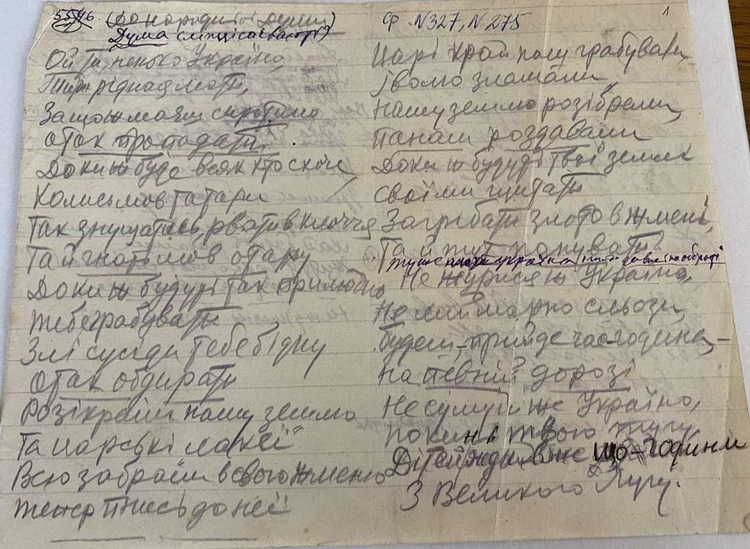 5546. (Záнародній Думи) Ф. N327, N275 1
Дума сліпців
Ой ти, ненько Україно,
Ти ж рідная мати,
Защо ж маєш сиротино
Отак пропадати?
Доки ж буде всяк хто схоче,
Колись мов татари
Так знущатись рвати в клоччя
Та й гноти мов отару
Доки ж будуть так прилюдно
Тебе грабувати
Злі сусіди тебе бідну
Отак обдирати
Розікрали нашу землю
Та царські лакеї
Всю забрали в свою жменю
тепер тнись до неї
Царі край наш грабували
і волю зламали
Нашу землю розібрали
панам роздавали
Доки ж будуть твої землі
своїми щитати
Загрібати злото в жмені,
Та й тут панувати
Не журися ж Україно,
Не лий марно сльози
будем – прийде час-година –
на певній дорозі
Не сумуй же Україно,
покинь твою тугу
Дітей жди вже що-години
З Великого Лугу.